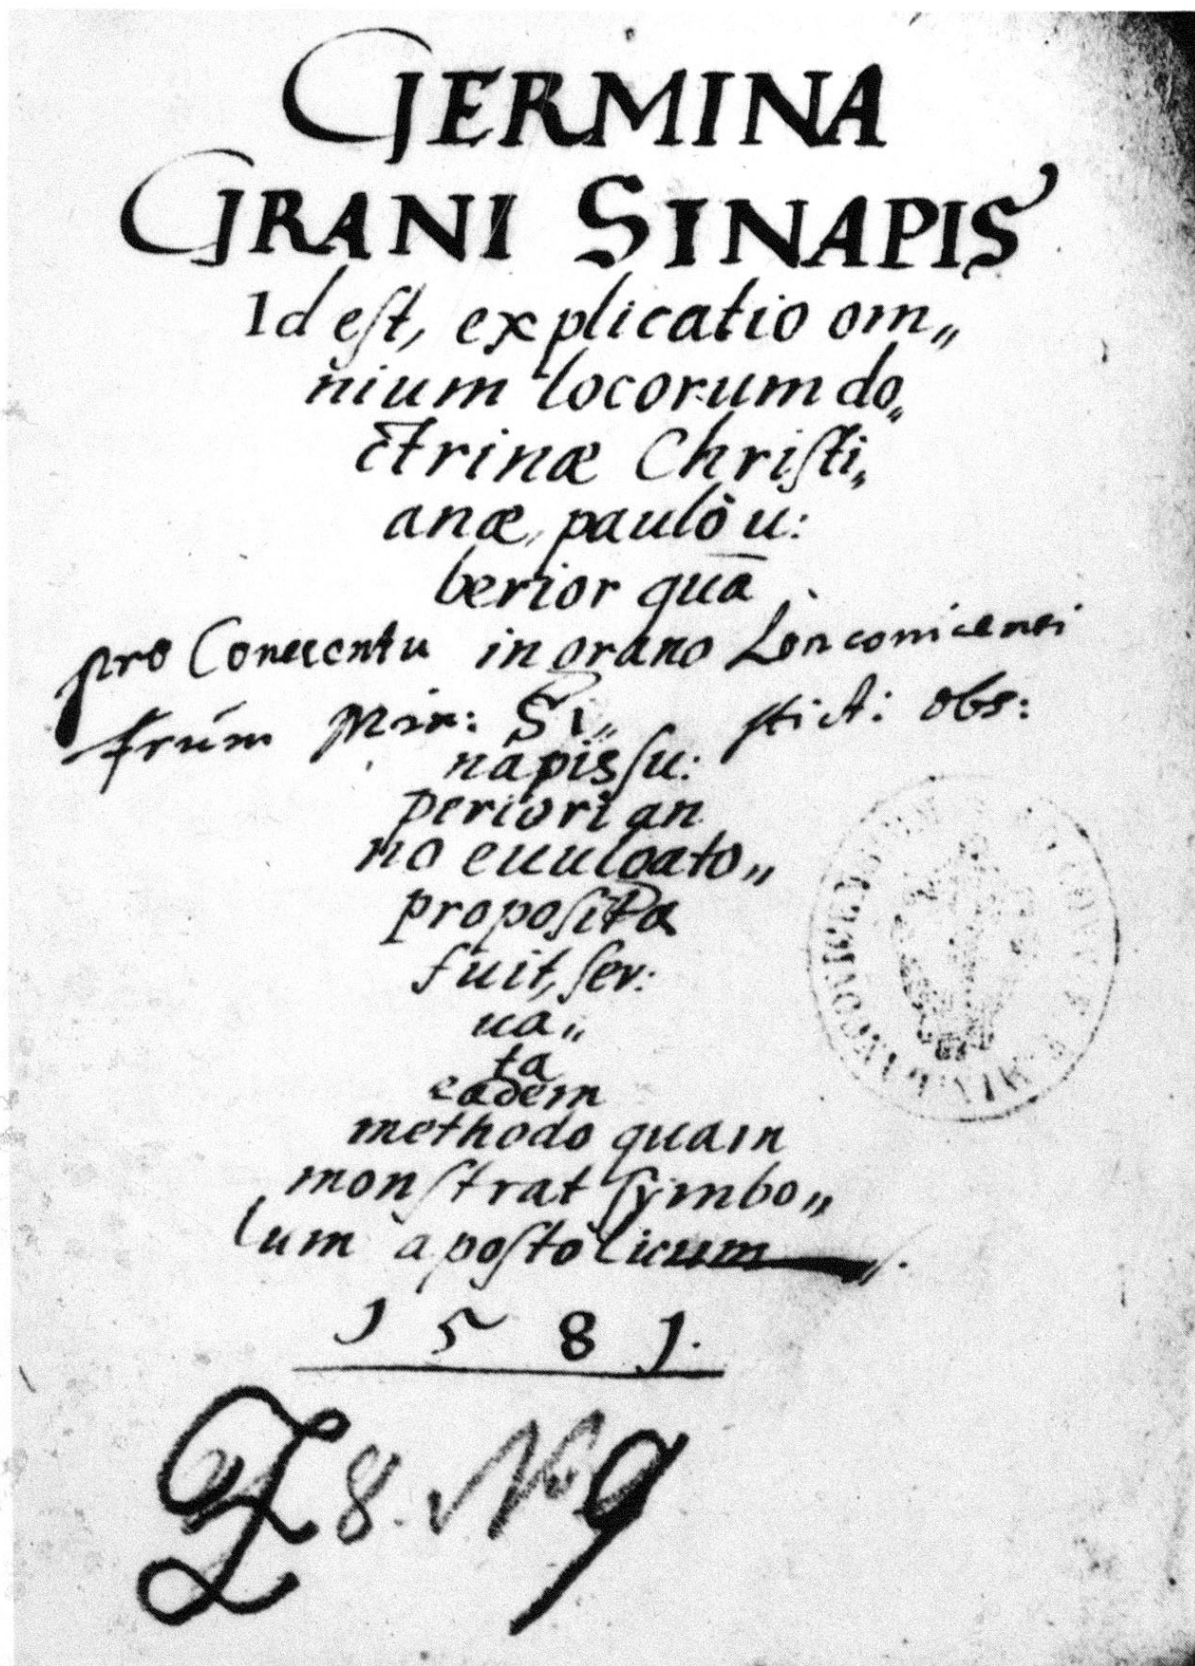 GERMINA
GRANI SINAPIS
Id eſt, explicatio om„
nium locorum do„
ctrinæ Chriſti„
anæ, paulò u:
berior quā
pro Conuentu in grano Lonconicensi
frūm Min: Si„ strict: obs:
napis ſu:
periori an
no euulgato„
propoſita
fuit, ſer:
ua„
ta
eadem
methodo quam
monſtrat ſymbo„
lum apoſtolicum
1581.
8. N 9